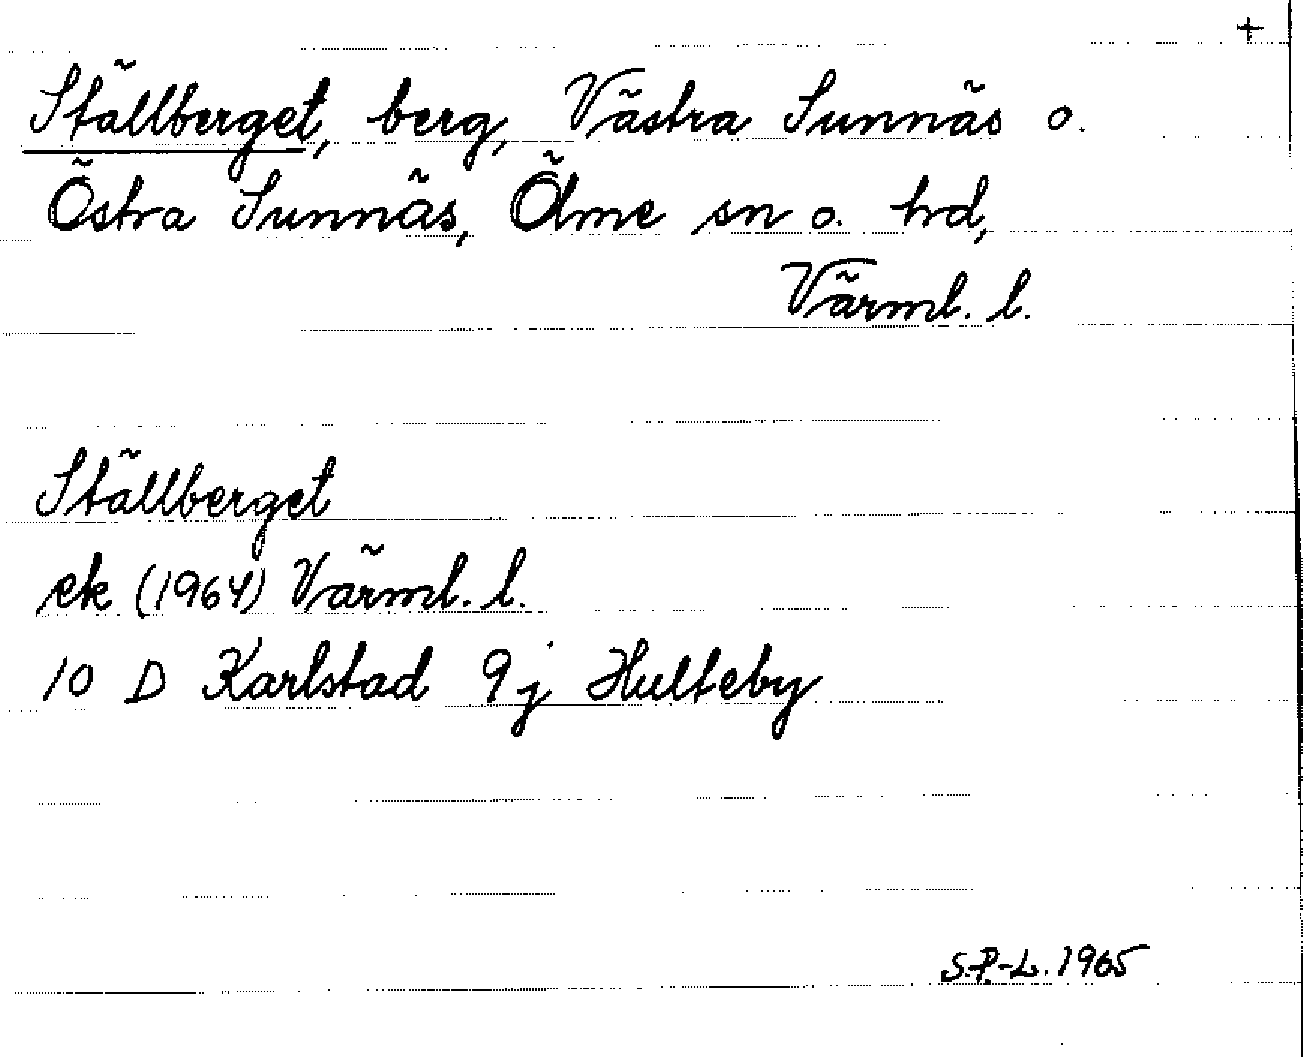 +
Ställberget, berg, Västra Sunnäs o.
Östra Sunnäs, Ölme sn o. hd,
Värml. l.
Ställberget
ek (1964) Värml. l.
10 D Karlstad 9j Hulteby
S.P.-L. 1965